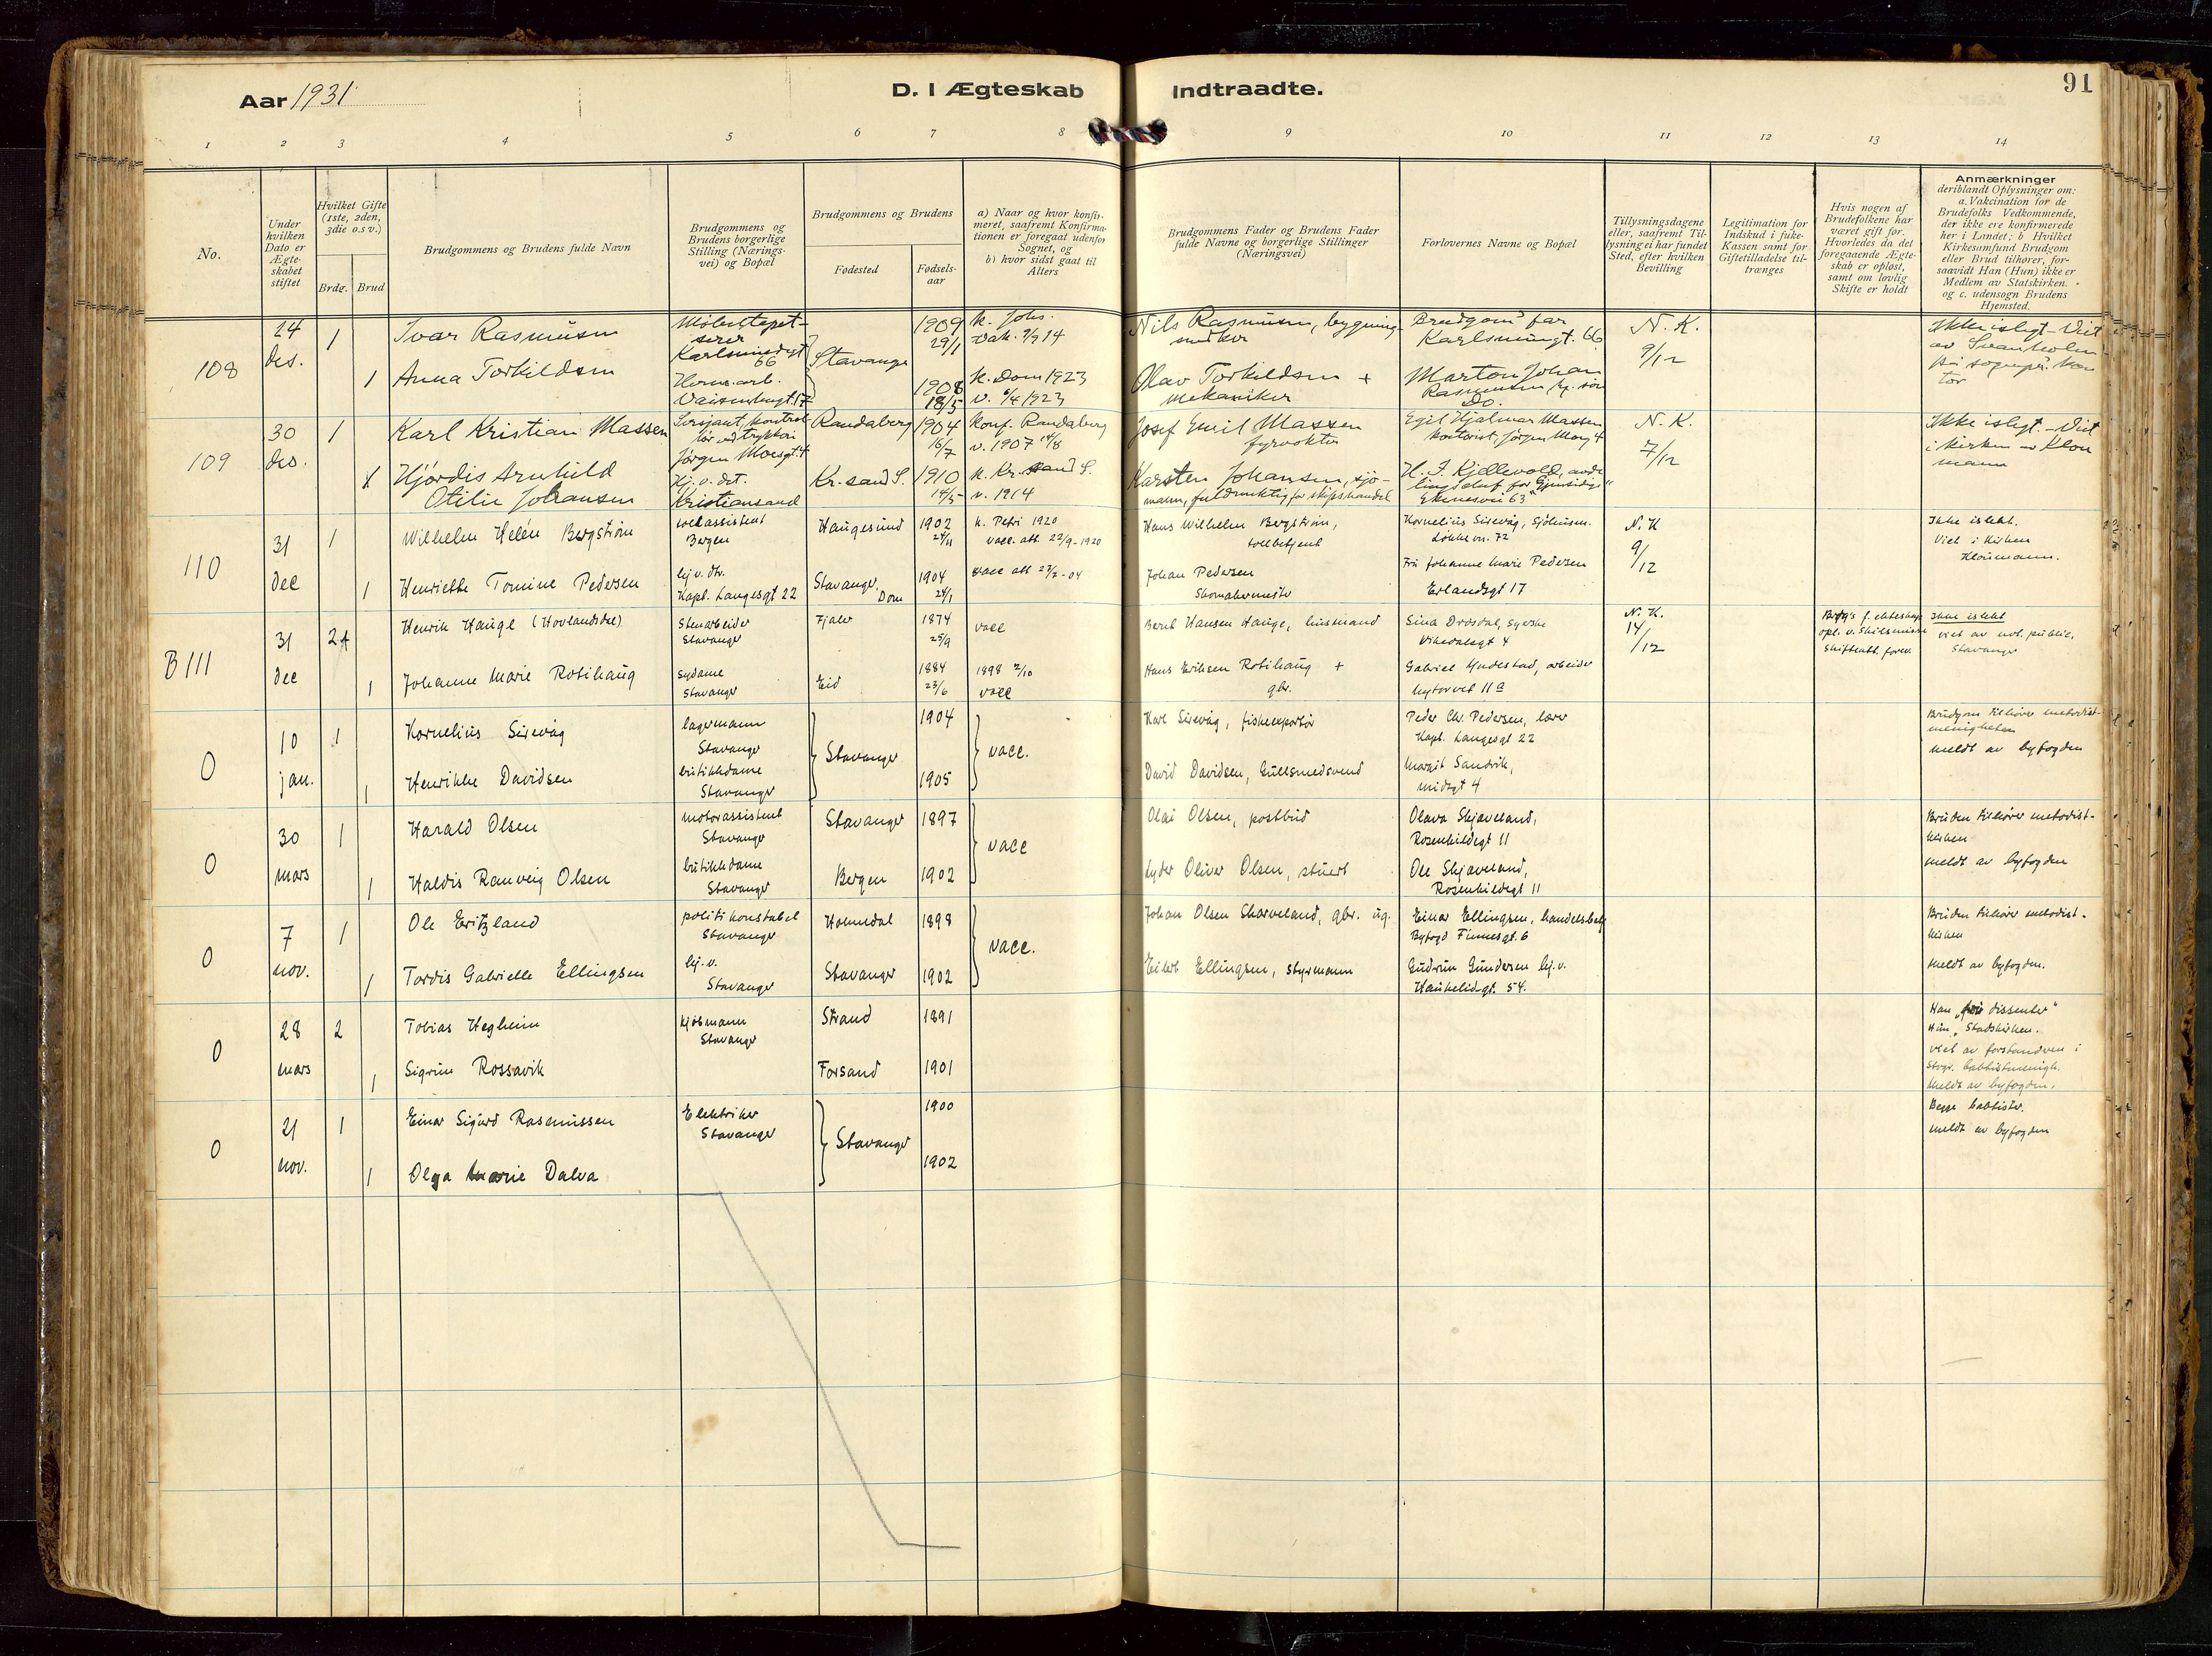 Aar 1931
D. I Ægteskab Indtraadte.
91
1 2 3 4 5 6 7 8 9 10 11 12 13 14
No.
Under hvilken Dato er Ægteskabet stiftet
Hvilket Gifte (1ste, 2den, 3die o.s v.)
Brdg. Brud
Brudgommens og Brudens fulde Navn
Brudgommens og Brudens borgerlige Stilling (Næringsvei) og Bopæl
Brudgommens og Brudens
Fødested
Fødselsaar
a) Naar og hvor konfirmeret, saafremt Konfirmationen er foregaat udenfor Sognet, og
b) hvor sidst gaat til Alters
Brudgommens Fader og Brudens Fader fulde Navne og borgerlige Stillinger (Næringsvei)
Forlovernes Navne og Bopæl
Tillysningsdagene eller, saafremt Tillysning ei har fundet Sted, efter hvilken Bevilling
Legitimation for Indskud i Enke-Kassen samt for Giftetilladelse tiltrænges
Hvis nogen af Brudefolkene har været gift før. Hvorledes da det foregaaende Ægteskab er opløst, samt om lovlig Skifte er holdt
Anmærkninger
deriblandt Oplysninger om: a. Vakcination for de Brudefolks Vedkommende, der ikke ere konfirmerede her i Landet; b Hvilket Kirkesamfund Brudgom eller Brud tilhører, forsaavidt Han (Hun) ikke er Medlem av Statskirken. og c. udensogn Brudens Hjemsted.
108
24 des.
1
Ivar Rasmussen
Møbeltapetserer
66
Stavanger
1909
29/1
k. Johs.
Nils Rasmussen, bygning
Brudgoms far
66
N. K.
9/12
1
Anna Torkildsen
1908
18/5
k. Dom 1923
v. 6/4 1923
Olav Torkildsen +
mekaniker
Marton Johan
Rasmussen
Do.
109
30 des.
1
Karl Kristian Massen
Sersjant,
Jørgen Moesgt. 4
Randaberg
1904
16/7
Konf. Randaberg
v. 1907 14/8
Josef Emil Massen
fyrvokter
Egil Hjalmar Massen
kontorist, Jørgen Moeg 4
N. K.
7/12
Ikke isligt. - Viet
i kirken
1
Hjørdis Arnhild
Otilie Johansen
Hj. v. det.
Kristiansand
Kr. sand S.
1910
14/5
k. Kr. sand S.
v. 1914
Karsten Johansen, sjømann, fuldmektig for skipshandel
H. J. Kjellevold,
Ekenesvei 63
110
31 dec
1
Wilhelm Helén Bergstrøm
tollassistent
Bergen
Haugesund
1902
24/11
k. Petri 1920
vacc. att 22/9-1920
Hans Wilhelm Bergstrøm,
tollbetjent
Kornelius Sirevåg, Sjøhusm.
Løkkevn. 72
N. K
9/12
Ikke islekt.
Viet i kirken
1
Henriette Tomine Pedersen
hj v. dtr.
Kapt. Langesgt 22
Stavanger, Dom
1904
24/1
vacc att 22/2-04
Johan Pedersen
Skomakermester
Fru Johanne Marie Pedersen
Erlandsgt 17
B 111
31 dec
2
Henrik Hauge (Hovlandsdal)
Stenarbeider
Stavanger
Fjaler
1874
25/9
vacc
Bernt Hansen Hauge, husmand
Sina Drosdal, syerske
Vikedalsgt 4
N. K.
14/12
Brdg's f. ekteskap
opl. v. Skilsmisse
Skifteatt. forev.
Ikke islekt
viet av not. public.
Stavanger
1
Johanne Marie Rotihaug
Sydame
Stavanger
Eid
1884
23/6
1898 2/10
vacc
Hans Eriksen Rotihaug +
gbr.
Gabriel Lyndestad, arbeider
Nytorvet 11 a
0
10 jan.
1
Kornelius Sirevåg
lagermann
Stavanger
Stavanger
1904
vacc.
Karl Sirevåg, fiskeexportør
Peder Chr. Pedersen, lærer
Kapt. Langesgt 22
Brudgom tilhører metodistmenigheten
meldt av byfogden
1
Henrikke Davidsen
butikkdame
Stavanger
1905
David Davidsen, Gullsmedsvend
Margit Sandvik,
Midtgt 4
0
30 mars
1
Harald Olsen
motorassistent
Stavanger
Stavanger
1897
vacc
Olai Olsen, postbud
Olava Skjaveland,
Rosenkildegt 11
Bruden tilhører metodistkirken
meldt av byfogden
1
Haldis Ranveig Olsen
butikkdame
Stavanger
Bergen
1902
Lyder Oliver Olsen, stuert
Ole Skjaveland,
Rosenkildegt 11
0
7 nov.
1
Ole Eritzland
politikonstabel
Stavanger
Holmedal
1898
vacc.
Johan Olsen Skarveland, gbr. ug.
Einar Ellingsen, handelsbetj
Byfogd Finnesgt. 6
Bruden tilhører metodistkirken
meldt av byfogden.
1
Tordis Gabrielle Ellingsen
hj. v.
Stavanger
Stavanger
1902
Eilert Ellingsen, styrmann
Gudrun Gundersen hj. v.
Haukeligt. 54.
0
28 mars
2
Tobias Hegheim
kjøbmann
Stavanger
Strand
1891
Han „ dissenter"
Hun „Statskirken.
viet av forstanderen i
Stvgr. babtistmenigh.
Meldt av byfogden.
1
Sigrun Rossavik
Forsand
1901
0
21 nov.
1
Einar Sigurd Rasmussen
Elektriker
Stavanger
Stavanger
1900
Begge babtister.
meldt av byfogden
1
Olga Marie Dalva
1902